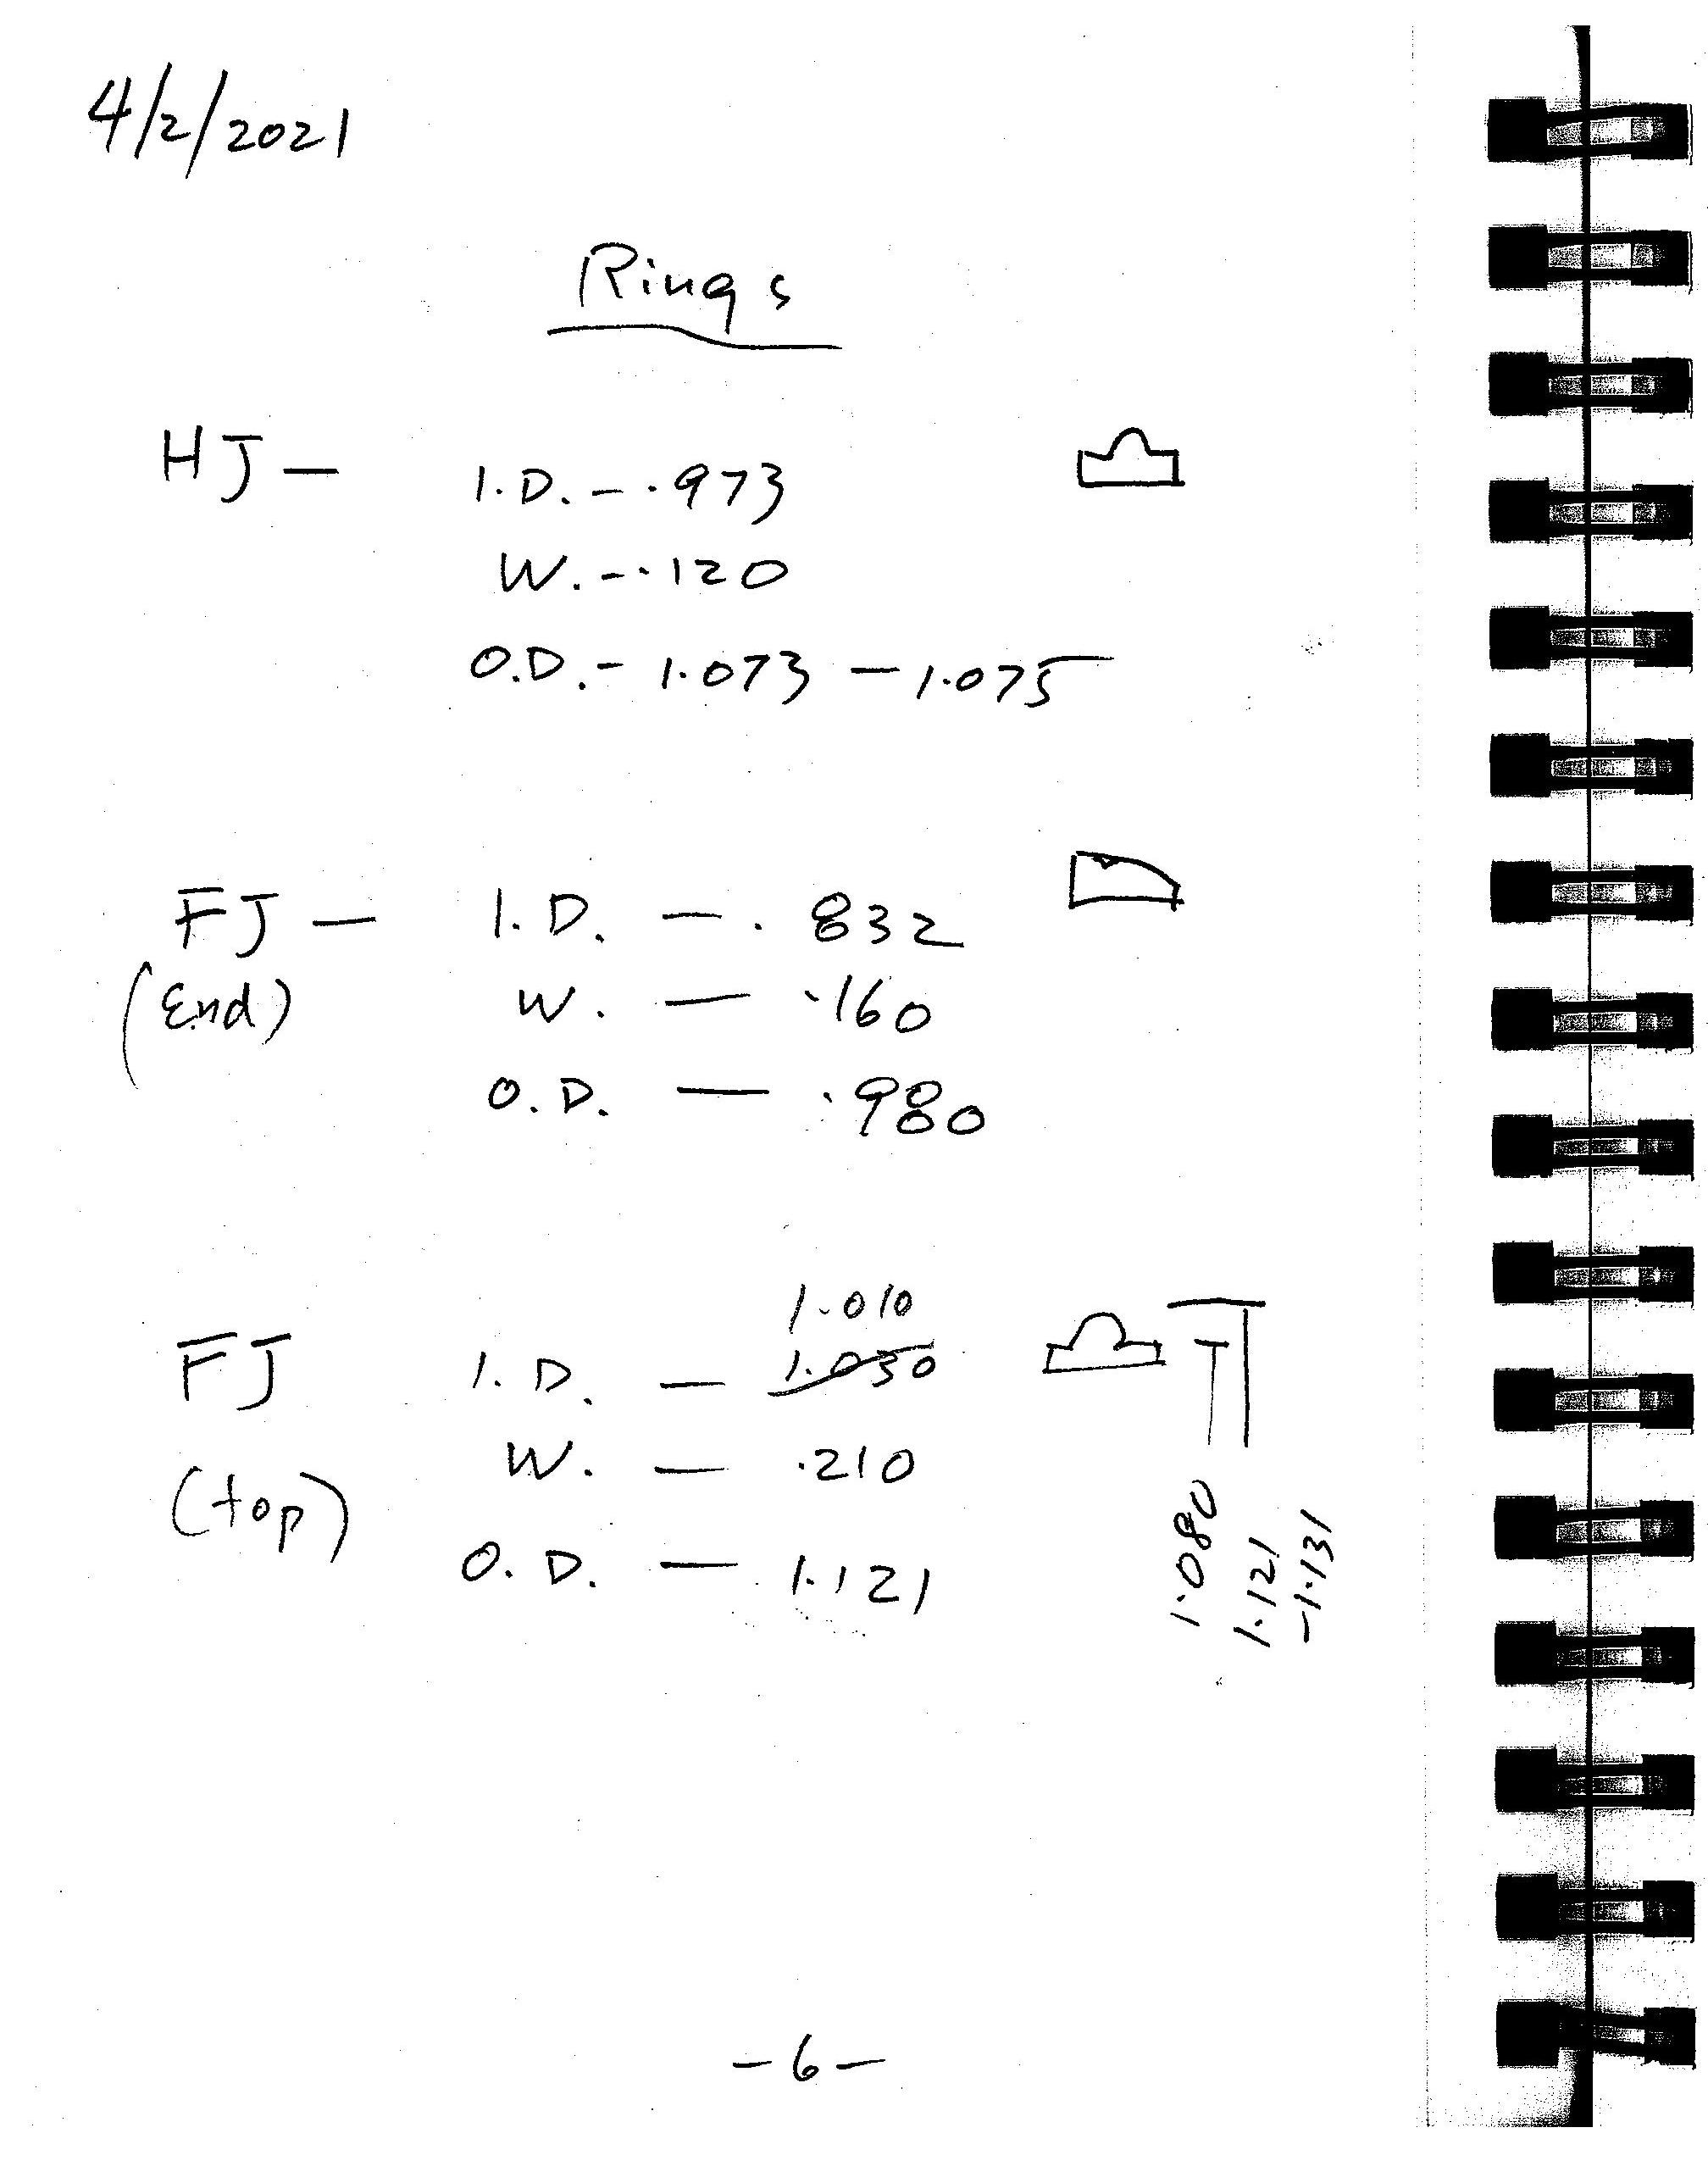 4/2/2021
Rings
HJ — I.D. - .973
W. - .120
O.D. - 1.073 - 1.075
FJ — I.D. — .832
(End) W. — .160
O.D. — .980
1.010
FJ I.D. — 1.030
(top) W. — .210
O.D. — 1.121
1.080
1.121
-1.131
-6-